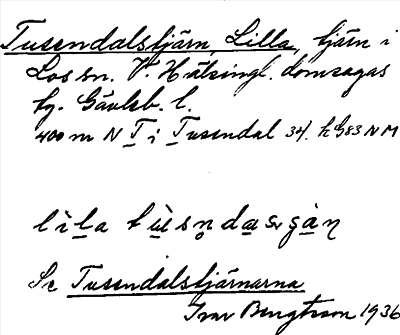 Tusendalstjärn, Lilla, tjärn i
Los sn. V. Hälsingl. domsagas
tg. Gävleb. l.
400 m N T i Tusendal 34. h G83 N M
lìla tùsn̥dasrgàn
Se Tusendalstjärnarna
Ivar Bengtsson 1936